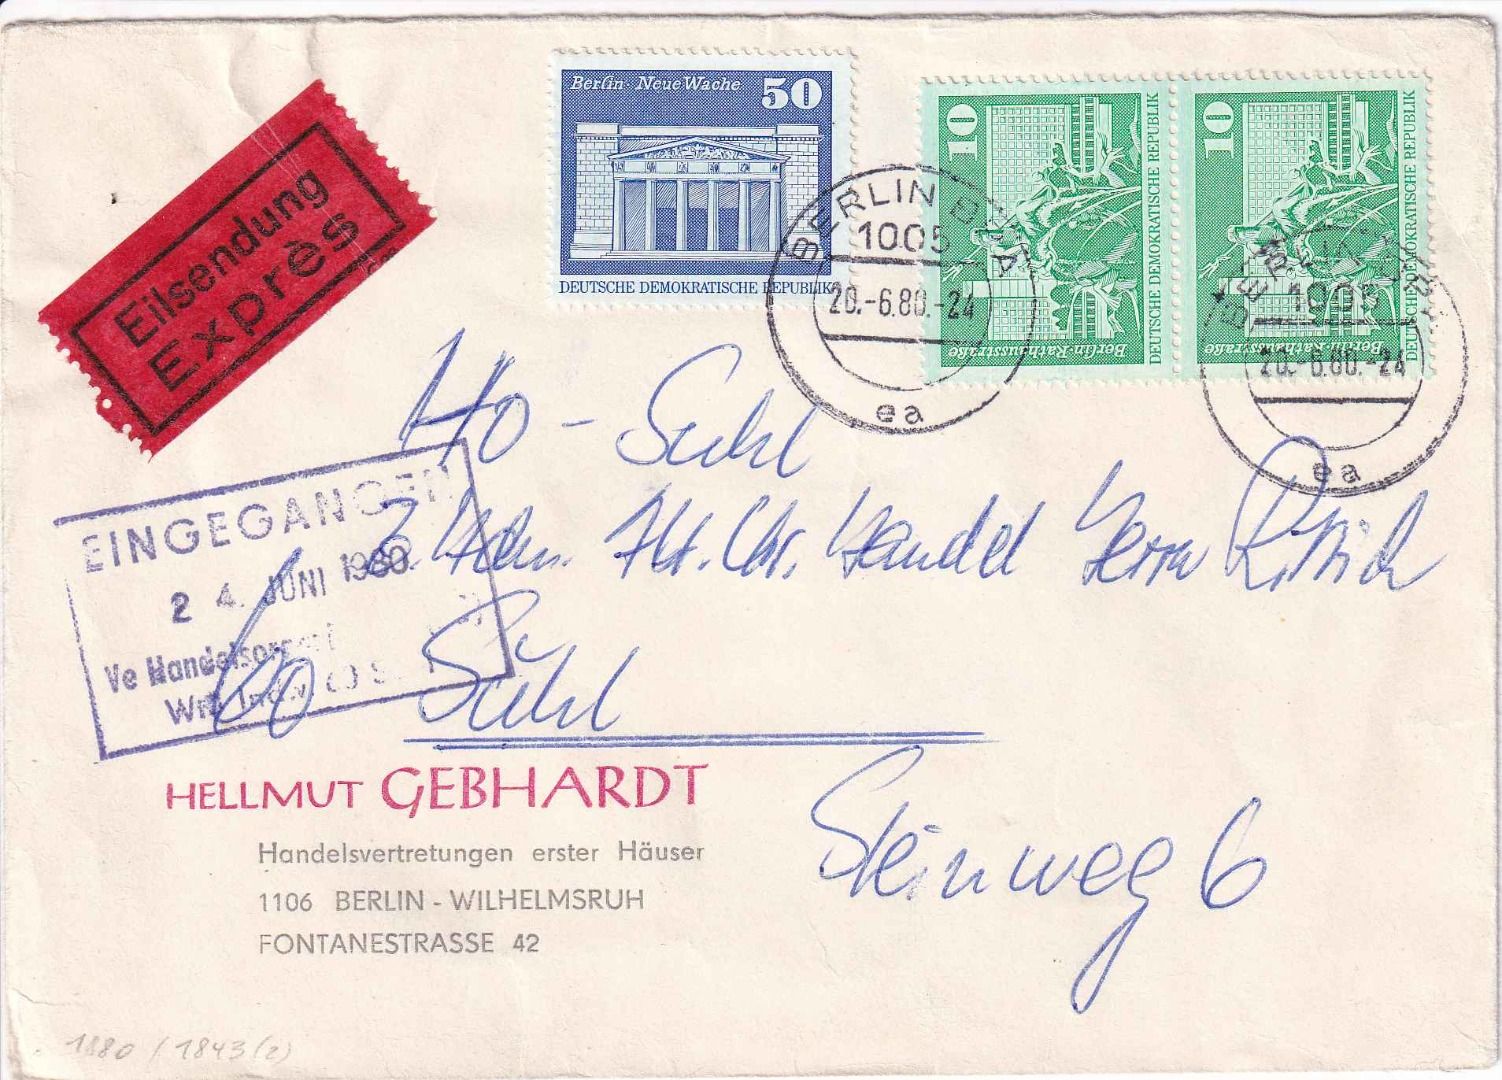 Berlin · Neue Wache 50
DEUTSCHE DEMOKRATISCHE REPUBLIK
10
Berlin-Rathausstraße
DEUTSCHE DEMOKRATISCHE REPUBLIK
10
Berlin-Rathausstraße
DEUTSCHE DEMOKRATISCHE REPUBLIK
Eilsendung
Exprès
BERLIN BPA
1005
20.-6.80.-24
ea
BERLIN BPA
1005
20.-6.80.-24
ea
HO - Suhl
Herrn
60 Suhl
Steinweg 6
EINGEGANGEN
24. JUNI 1980
HELLMUT GEBHARDT
Handelsvertretungen erster Häuser
1106 BERLIN - WILHELMSRUH
FONTANESTRASSE 42
1880 / 1843 (2)